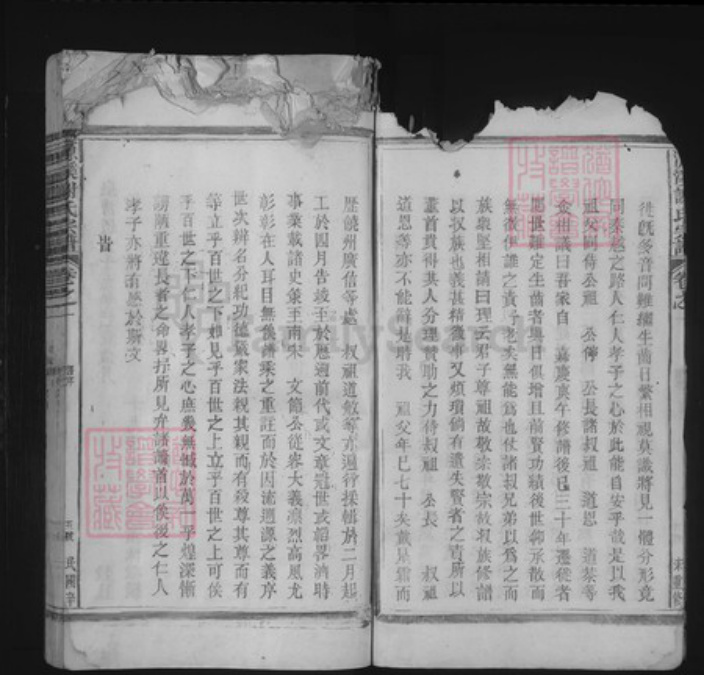 徙旣多音問難繼生齒日繁相視莫識將見一體分形竟
同秦越之路人仁人孝子之心於此能自安乎哉是以我
祖父同侍公祖 公倬 公長諸叔祖 道思 道荼等
僉相議曰吾家自 嘉慶庚午修譜後已三十年遷徙者
歷世難定生齒者與日俱增且前賢功績後世仰承散而
無徵伊誰之責予老矣無能爲也仗諸叔兄弟以爲之而
族衆堅相請曰理云君子尊祖故敬宗敬宗故叔族修譜
以收族也義甚精微事又煩瑣倘有遺失賢者之責所以
董首貴得其人分理贊助之力侍叔祖 公長 叔祖
道恩等亦不能辭是時我 祖父年已七十矣戴星霜而
歷饒州廣信等處 叔祖道敏等亦遍行採輯於二月起
工於四月告竣至於歷溯前代或文章冠世或韜畧濟時
事業載諸史乘王南宋 文節公從容大義凛烈高風尤
彰彰在人耳目無俟譜乘之重註而於因流溯源之義序
世次辨名分紀功德嚴家法親其親而有殺尊其尊而有
等立乎百世之下如見乎百世之上立乎百世之上可俟
乎百世之下仁人孝子之心庶幾無憾於萬一乎煌深慚
謭陋重違長者之命畧抒所見弁諸譜首以俟後之仁人
孝子亦將有感於斯文
旹
氏宗譜
卷之
FamilySearch